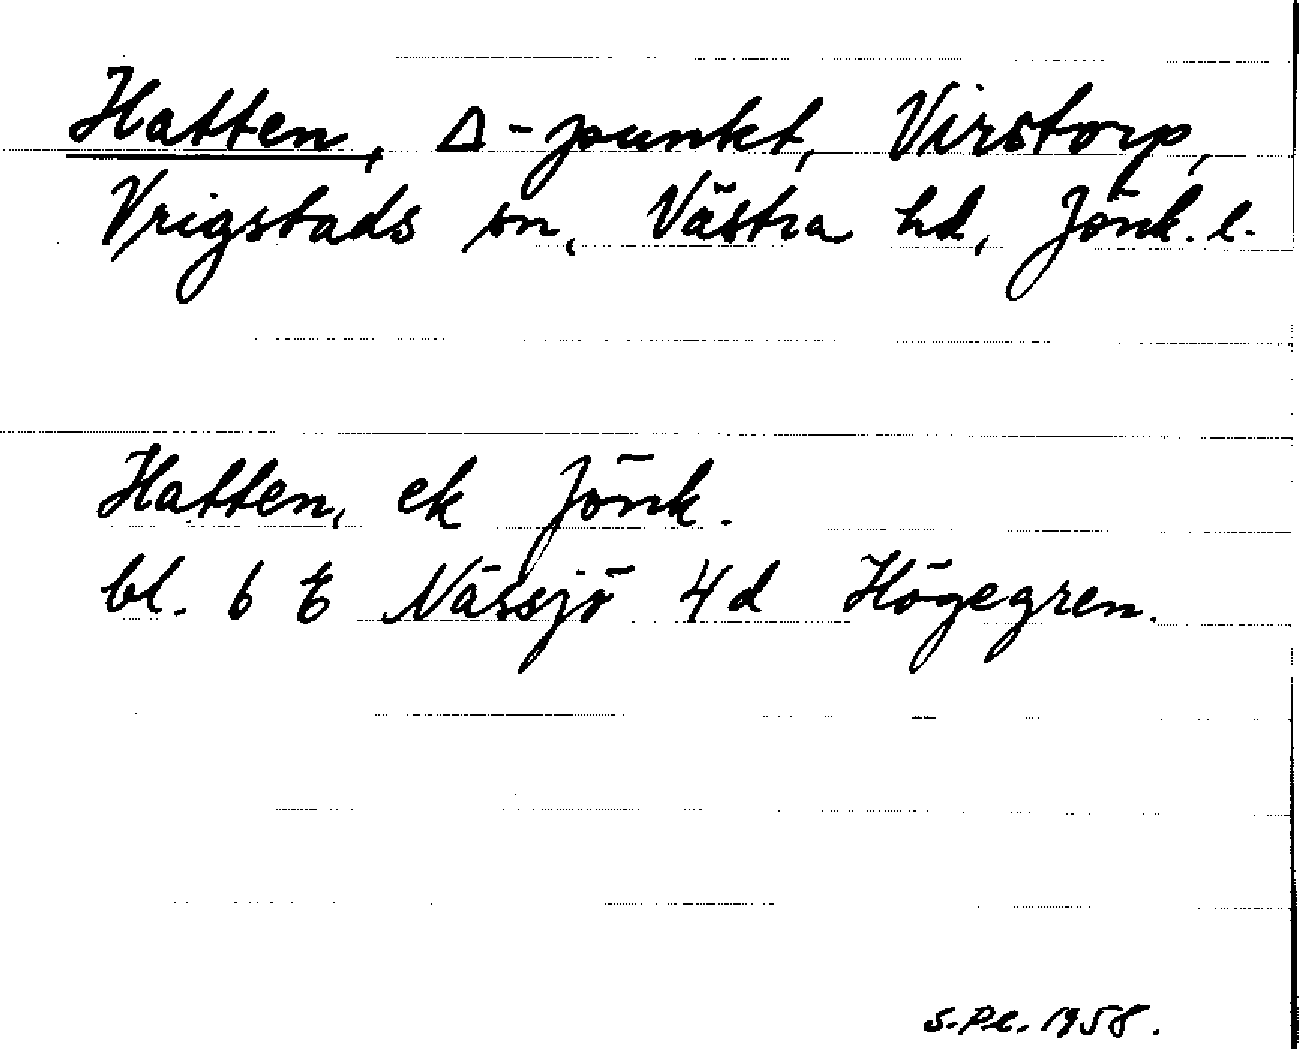 Hatten, Δ-punkt, Virstorp,
Vrigstads sn, Västra hd, Jönk. l.
Hatten, ek Jönk.
bl. 6 E Nässjö 4d Högegren.
S.Pl. 1958.